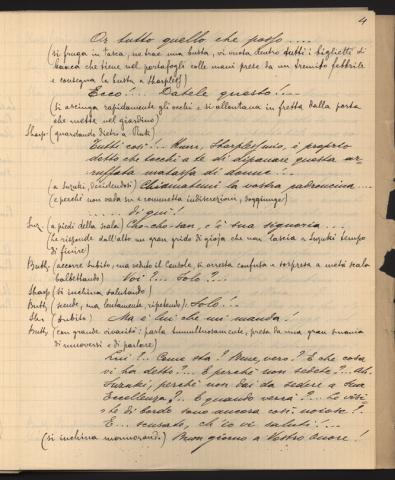 4
Or tutto quello, che posso....
(si fruga in tasca, ne trae una busta, vi vuota dentro tutti i biglietti di
banca che tiene nel portafogli colle mani prese da un tremito febbrile
e consegna la busta a Sharpless)
Ecco!... Datele questo!...
(si asciuga rapidamente gli occhi e si allontana in fretta dalla porta
che mette nel giardino)
Sharp- (guardando dietro a Pink)
Tutti così!.. Hum, Sharpless mio, è proprio
detto che tocchi a te di dipanare questa ar-
ruffata matassa di donne!...
(a Suzuki, decidendosi) Chiamatemi la vostra padroncina...
(e perchè non vada su e commetta indiscrezioni, soggiunge)
..... Di qui!
Suz- (a piedi della scala) Cho-cho-san, c'è sua signoria...
(Le risponde dall'alto un gran grido di gioja che non lascia a Suzuki tempo
di finire)
Butt- (accorre subito, ma veduto il Console, si arresta confusa e sorpresa a metà scala
balbettando) Voi?... Solo?...
Sharp- (si inchina salutando)
Butt- (scende, ma lentamente, ripetendo): Solo!...
Shr- (subito) Ma è lui che mi manda!
Butt- (con grande vivacità; parla tumultuosamente, presa da una gran smania
di muoversi e di parlare)
Lui?.. Come sta? Bene, vero? E che cosa
vi ha detto?... E perchè non sedete?... Ah,
Suzuki, perchè non dai da sedere a Sua
Eccellenza?.. E quando verrà?... Le visi-
te di bordo sono ancora così noiose?..
E... scusate, ch'io vi saluti!...
(si inchina mormorando) Buon giorno a Vostro Onore!